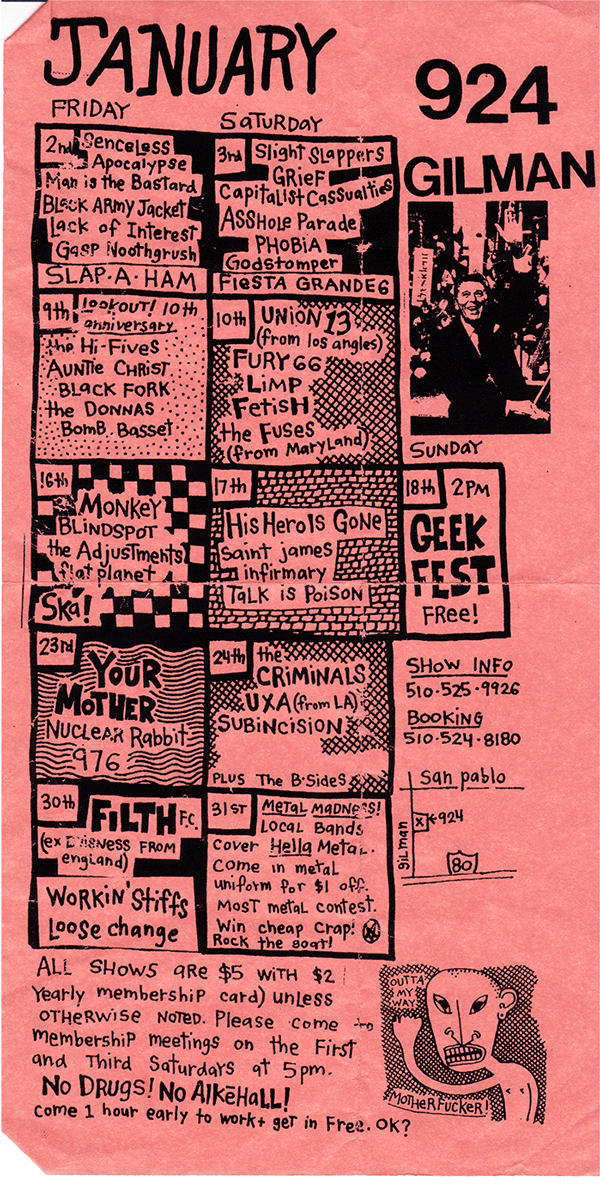 JANUARY
924
GILMAN
FRIDAY
SATURDAY
2nd Senceless
Apocalypse
Man is the Bastard
Black Army Jacket
Lack of Interest
Gasp Noothgrush
SLAP·A·HAM
3rd Slight Slappers
GRieF
Capitalist Cassualties
ASSHole Parade
PHOBiA
Godstomper
FiESTA GRANDE 6
9th Lookout! 10th
anniversary
the Hi-Fives
Auntie Christ
Black Fork
the Donnas
Bomb Basset
10th UNION 13
(from los angles)
FURY 66
LiMP
FetisH
the Fuses
(from Maryland)
16th
Monkey
BLiNDSPOT
the Adjustments
flat planet
Ska!
17th
His Hero Is Gone
Saint james
infirmary
TaLK is PoiSON
SUNDAY
18th 2PM
GEEK
FEST
FRee!
23rd
YOUR
MOTHER
NUCLEAR Rabbit
976
24th the
CRiMiNALS
UXA (from LA)
SUBiNCiSiON
PLUS The B·Sides
SHOW INFO
510·525·9926
BOOKiNG
510·524·8180
San pablo
gilman
X ←924
80
30th FiLTH F.C.
(ex FROM
england)
WORKiN' Stiffs
Loose change
31ST Metal Madness!
LOCAL Bands
Cover Hella Metal.
Come in metal
uniform for $1 off.
MOST metal contest.
Win cheap Crap!
Rock the goat!
ALL SHOWS aRe $5 WiTH $2
Yearly membership card) unless
OTHerwise NOTED. Please come to
membership meetings on the First
and Third Saturdays at 5pm.
No DRUGS! No AlkēHaLL!
Come 1 hour early to work + get in Free. OK?
OUTTA
MY
WAY
MOTHERFUCKER!